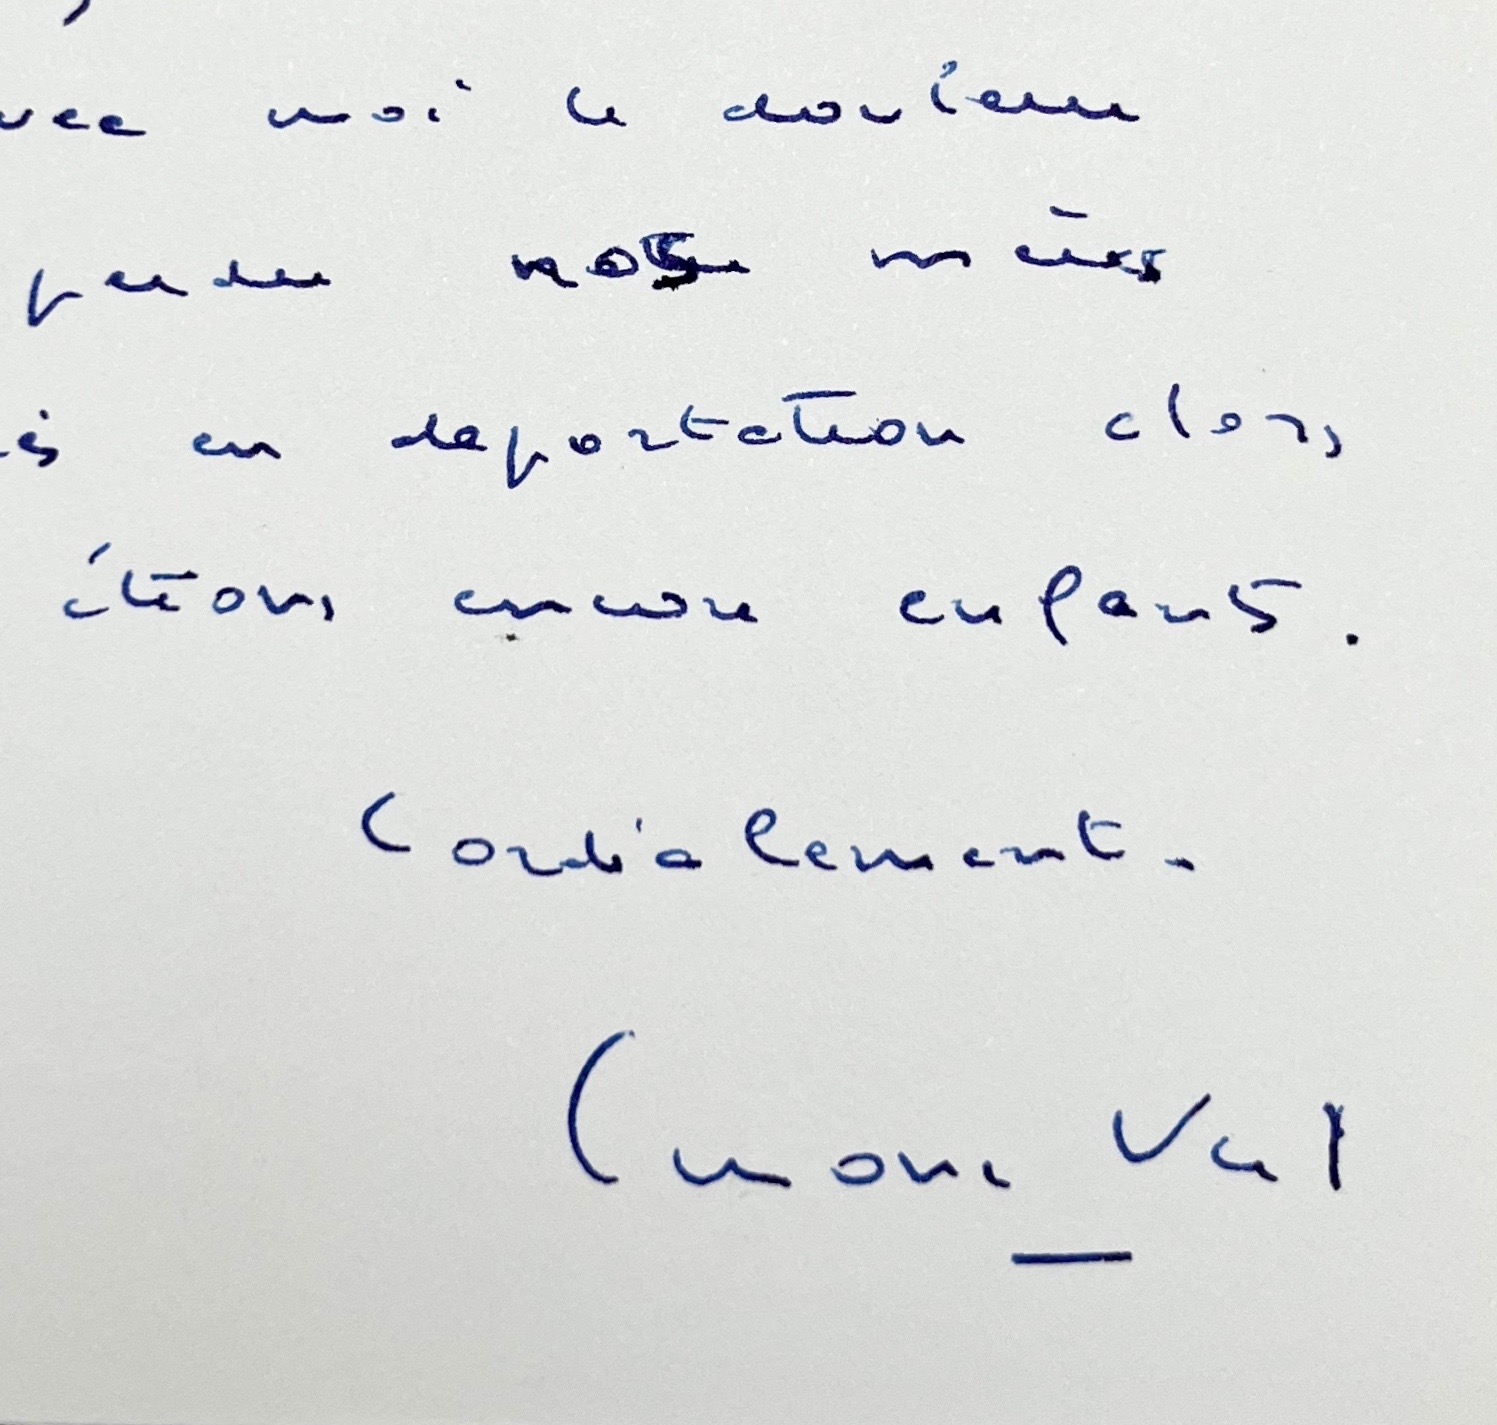 avec moi la douleur
perdu nos mères
és en déportation alors
étions encore enfants.
Cordialement.
Simone Veil